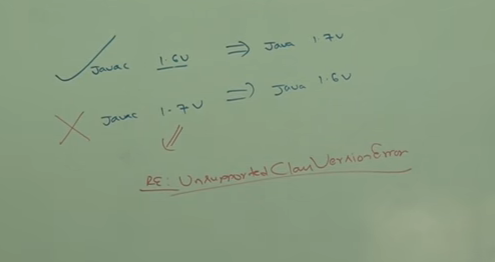 Javac 1.6V ⇒ Java 1.7V
Javac 1.7V ⇒ Java 1.6V
RE: UnsupportedClassVersionError